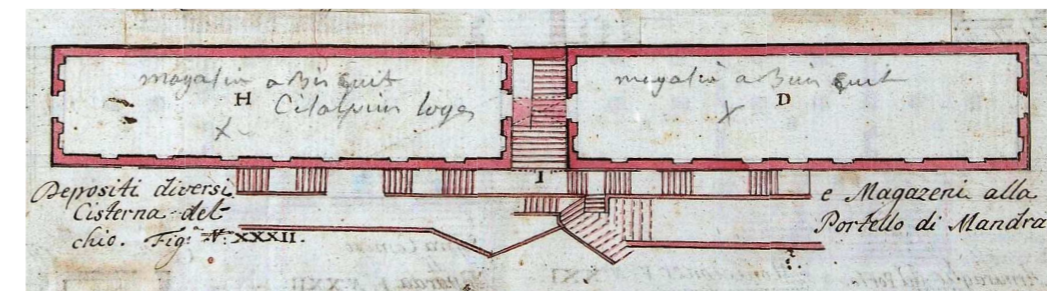 magasin a Biscuit
H
Citoyens loges
X
magasin a Biscuit
D
X
I
Depositi diversi
Cisterna del
chio. Fig.ᵃ N: XXXII.
e Magazeni alla
Portello di Mandra